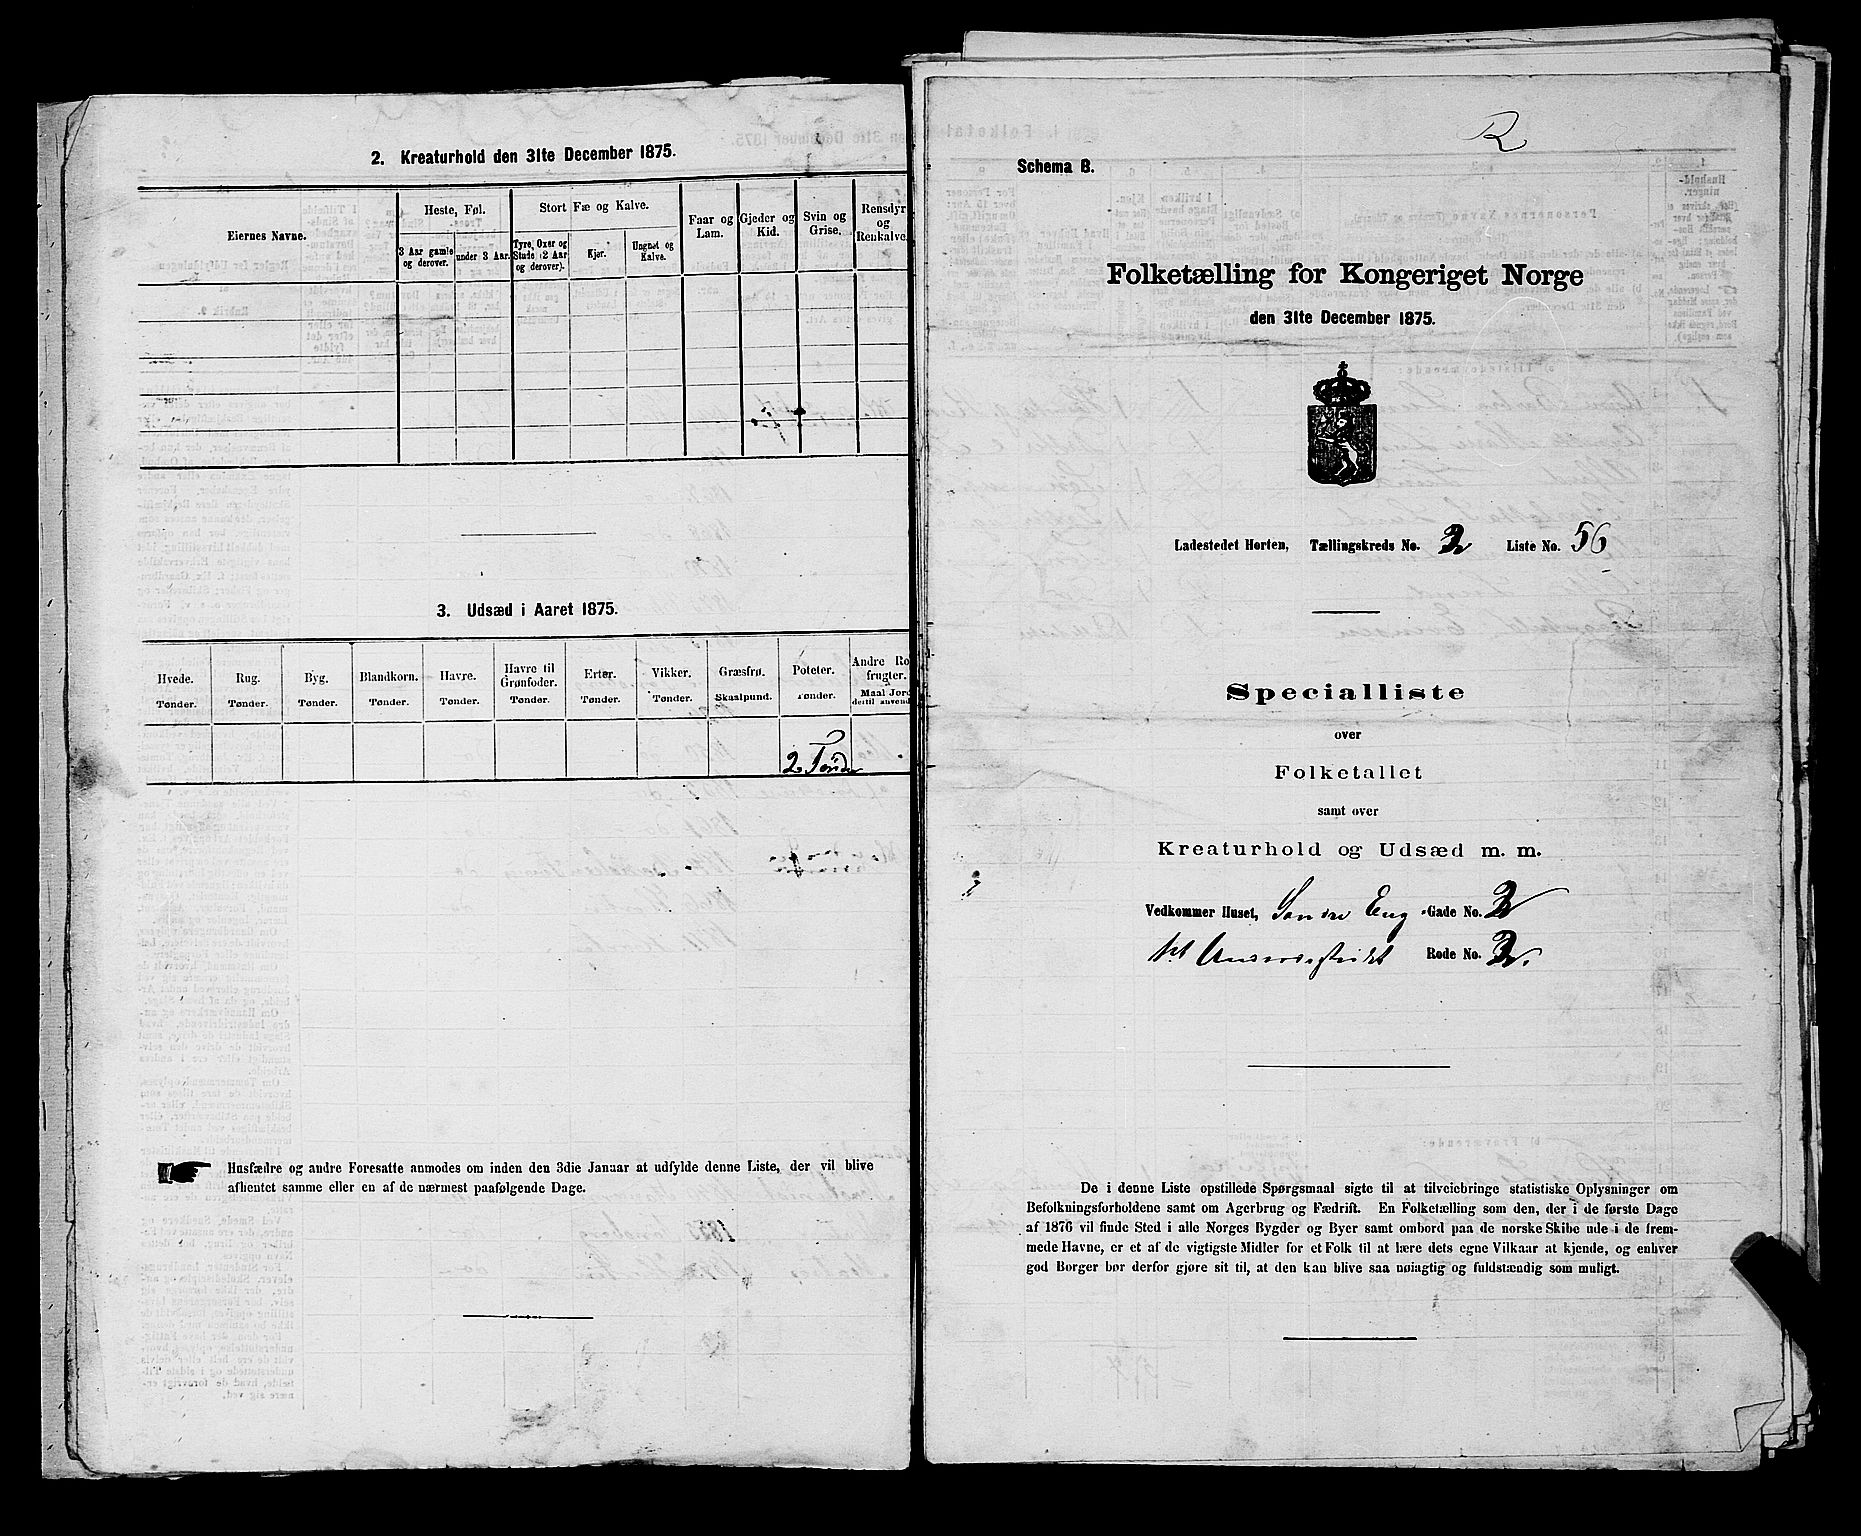 2. Kreaturhold den 31te December 1875.
Eiernes Navne.
Heste, Føl.
3 Aar gamle og derover.
under 3 Aar.
Stort Fæ og Kalve.
Tyre, Oxer og Stude (2 Aar og derover).
Kjør.
Ungnøt og Kalve.
Faar og Lam.
Gjeder og Kid.
Svin og Grise.
Rensdyr og Renkalve.
3. Udsæd i Aaret 1875.
Hvede. Tønder.
Rug. Tønder.
Byg. Tønder.
Blandkorn. Tønder.
Havre. Tønder.
Havre til Grønfoder. Tønder.
Erter. Tønder.
Vikker. Tønder.
Græsfrø. Skaalpund.
Poteter. Tønder.
Andre Ro frugter. Maal Jord dertil anvend
2 Tønder
Husfædre og andre Foresatte anmodes om inden den 3die Januar at udfylde denne Liste, der vil blive
afhentet samme eller en af de nærmest paafølgende Dage.
R
Schema B.
Folketælling for Kongeriget Norge
den 31te December 1875.
Ladestedet Horten, Tællingskreds No. 2 Liste No. 56
Specialliste
over
Folketallet
samt over
Kreaturhold og Udsæd m. m.
Vedkommer Huset, Søndre Eng -Gade No. 2
Rode No. 2.
De i denne Liste opstillede Spørgsmaal sigte til at tilveiebringe statistiske Oplysninger om
Befolkningsforholdene samt om Agerbrug og Fædrift. En Folketælling som den, der i de første Dage
af 1876 vil finde Sted i alle Norges Bygder og Byer samt ombord paa de norske Skibe ude i de frem-
mede Havne, er et af de vigtigste Midler for et Folk til at lære dets egne Vilkaar at kjende, og enhver
god Borger bør derfor gjøre sit til, at den kan blive saa nøiagtig og fuldstændig som muligt.